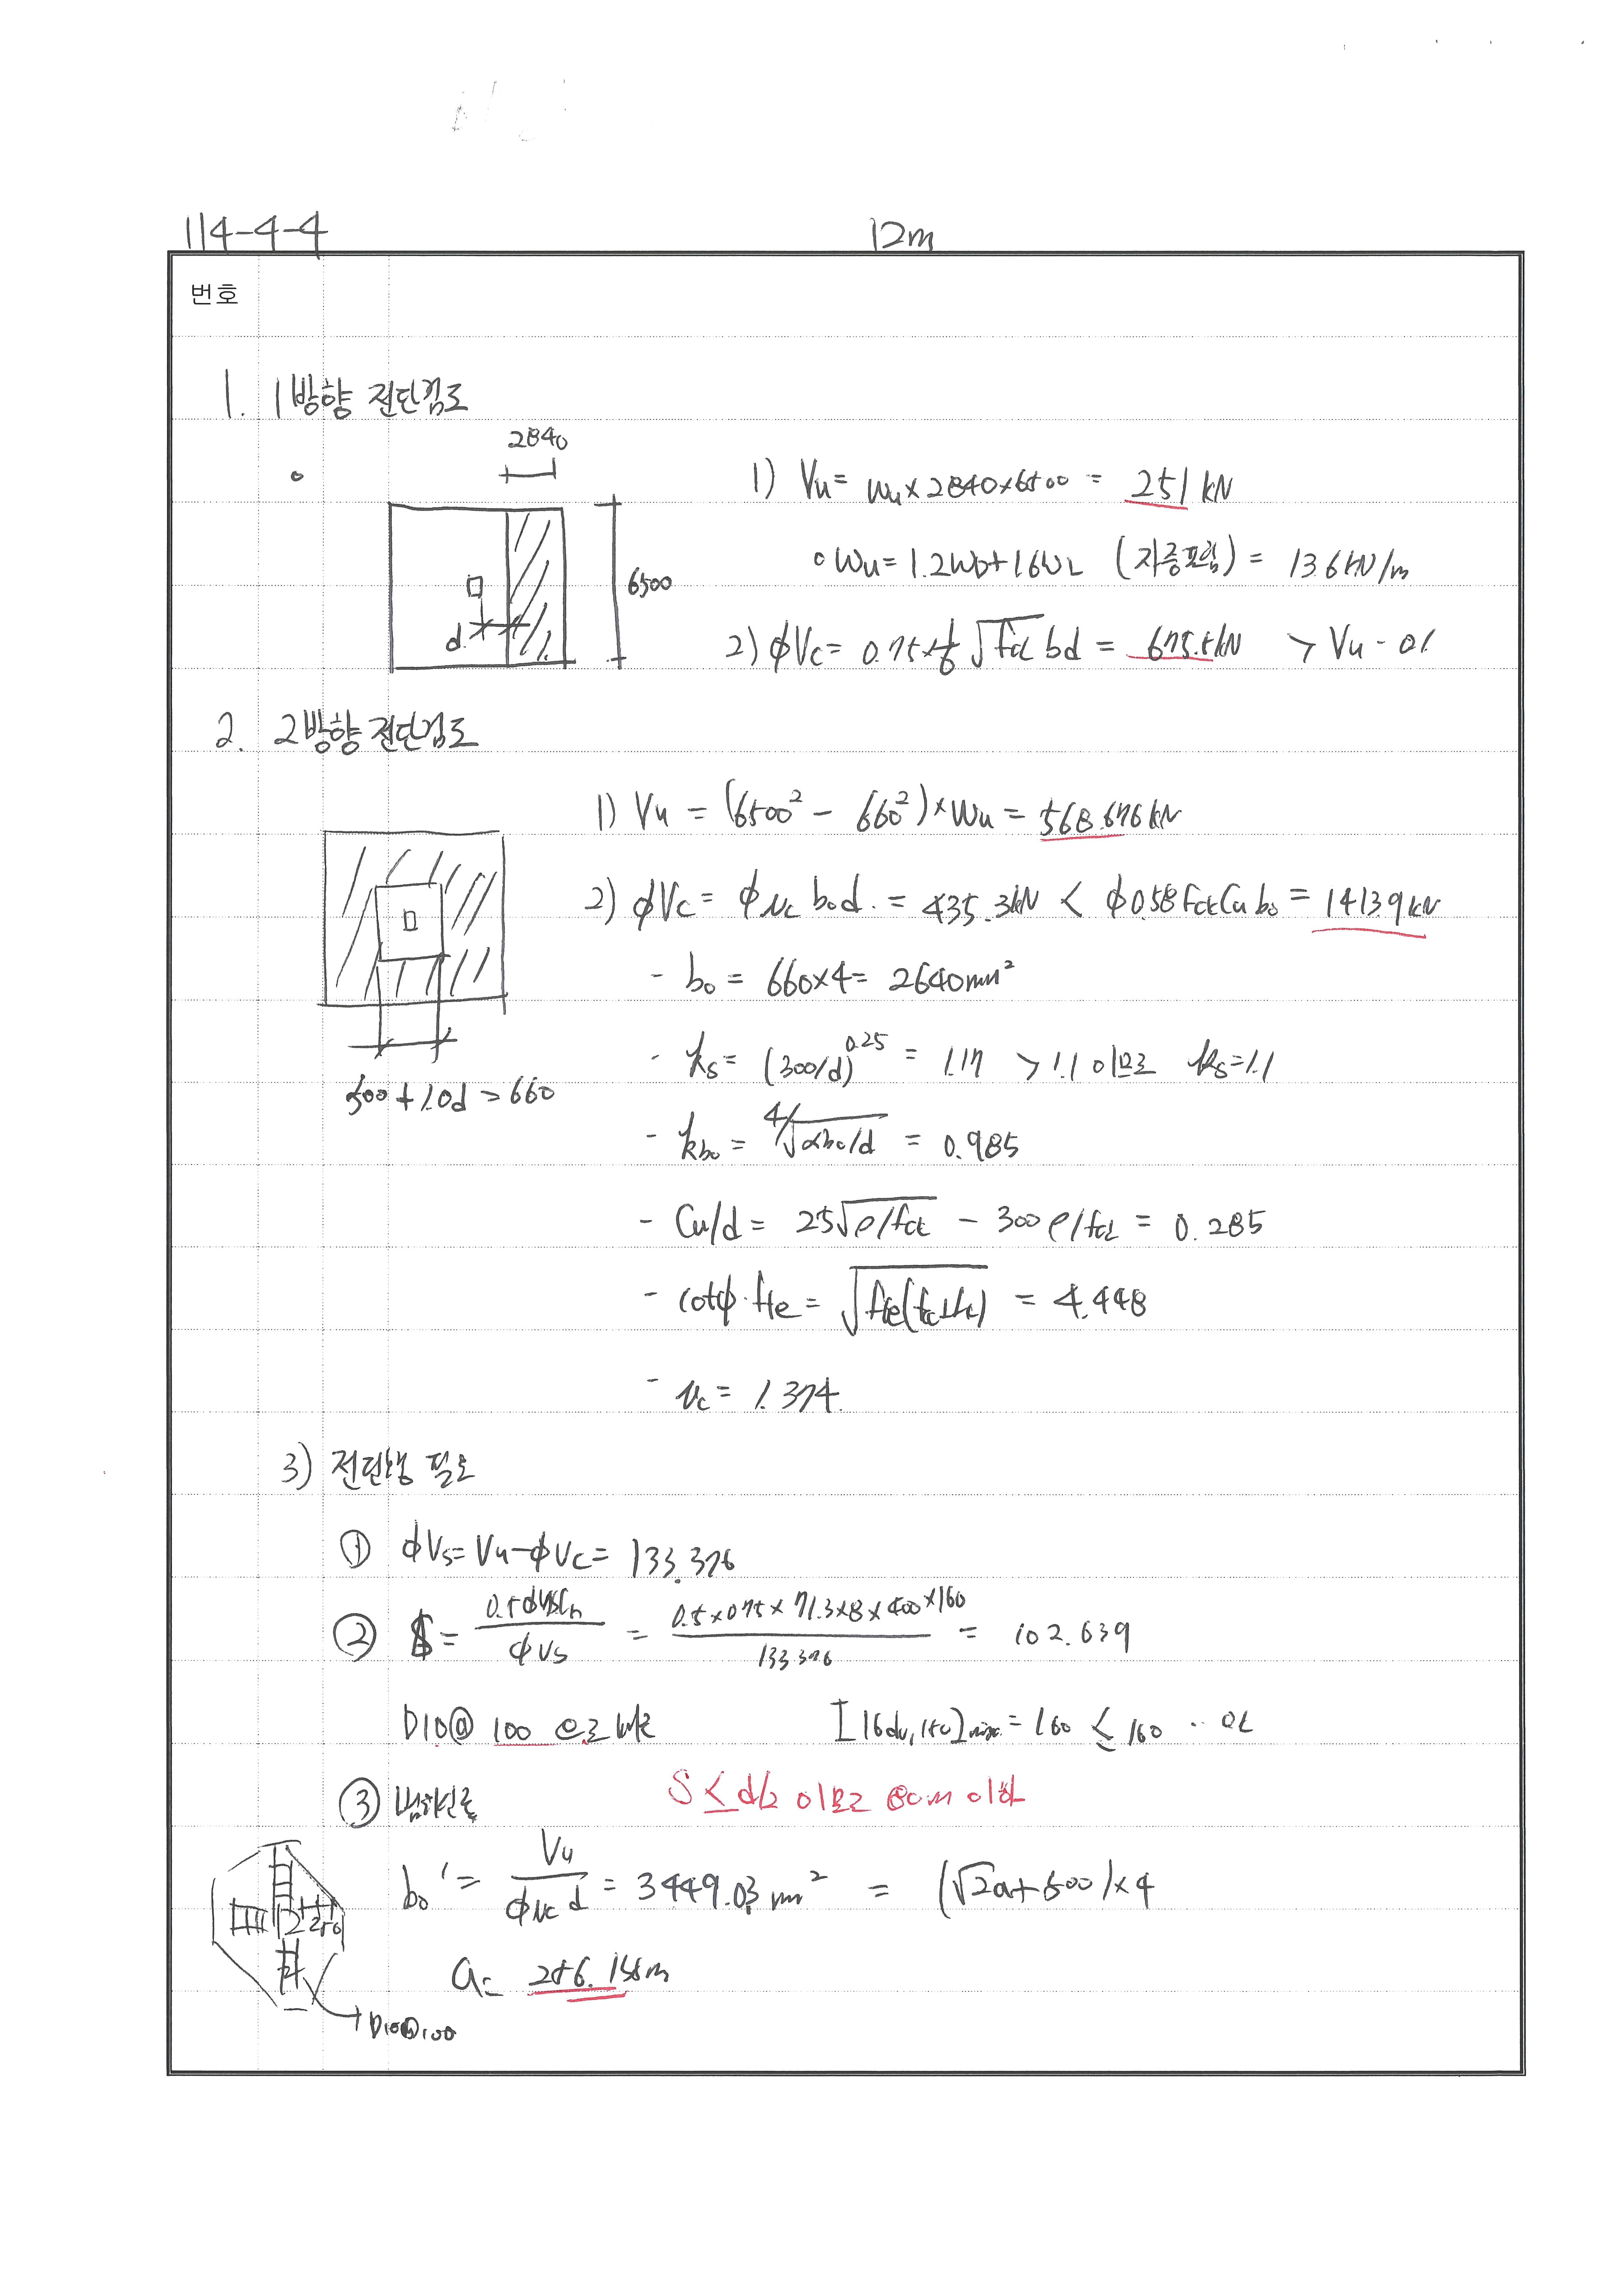 114-4-4
12m
번호
1. 1방향 전단검토
2840
6500
d
1) Vu = wu×2840×6500 = 251kN
∘ wu = 1.2wD+1.6wL (자중포함) = 13.6kN/m
2) φVc = 0.75×1/6 √fck bd = 675.5kN > Vu - ok
2. 2방향 전단검토
500+1.0d = 660
1) Vu = (6500² - 660²)×wu = 568.676kN
2) φVc = φ vc bod. = 435.3kN < φ0.58fck Cu bo = 1413.9kN
- bo = 660×4 = 2640mm²
- ks = (300/d)^0.25 = 1.17 > 1.1 이므로 ks=1.1
- kbo = ⁴√αbo/d = 0.985
- Cu/d = 25√ρ/fck - 300 ρ/fck = 0.285
- cotφ·fte = √fte(fte+fcc) = 4.448
- vc = 1.374
3) 전단보강 필요
① φVs = Vu-φVc = 133.376
② S = / φVs = 0.5×0.75×71.3×8×400×160 / 133.376 = 102.639
D10@ 100 으로 배근
= 160 ≤ 160 ·· ok
S ≤ d/2 이므로 80m 이하
③
bo' = Vu / φvc d = 3449.03 mm² = (√2a+500)×4
a = 256.156m
D10@100